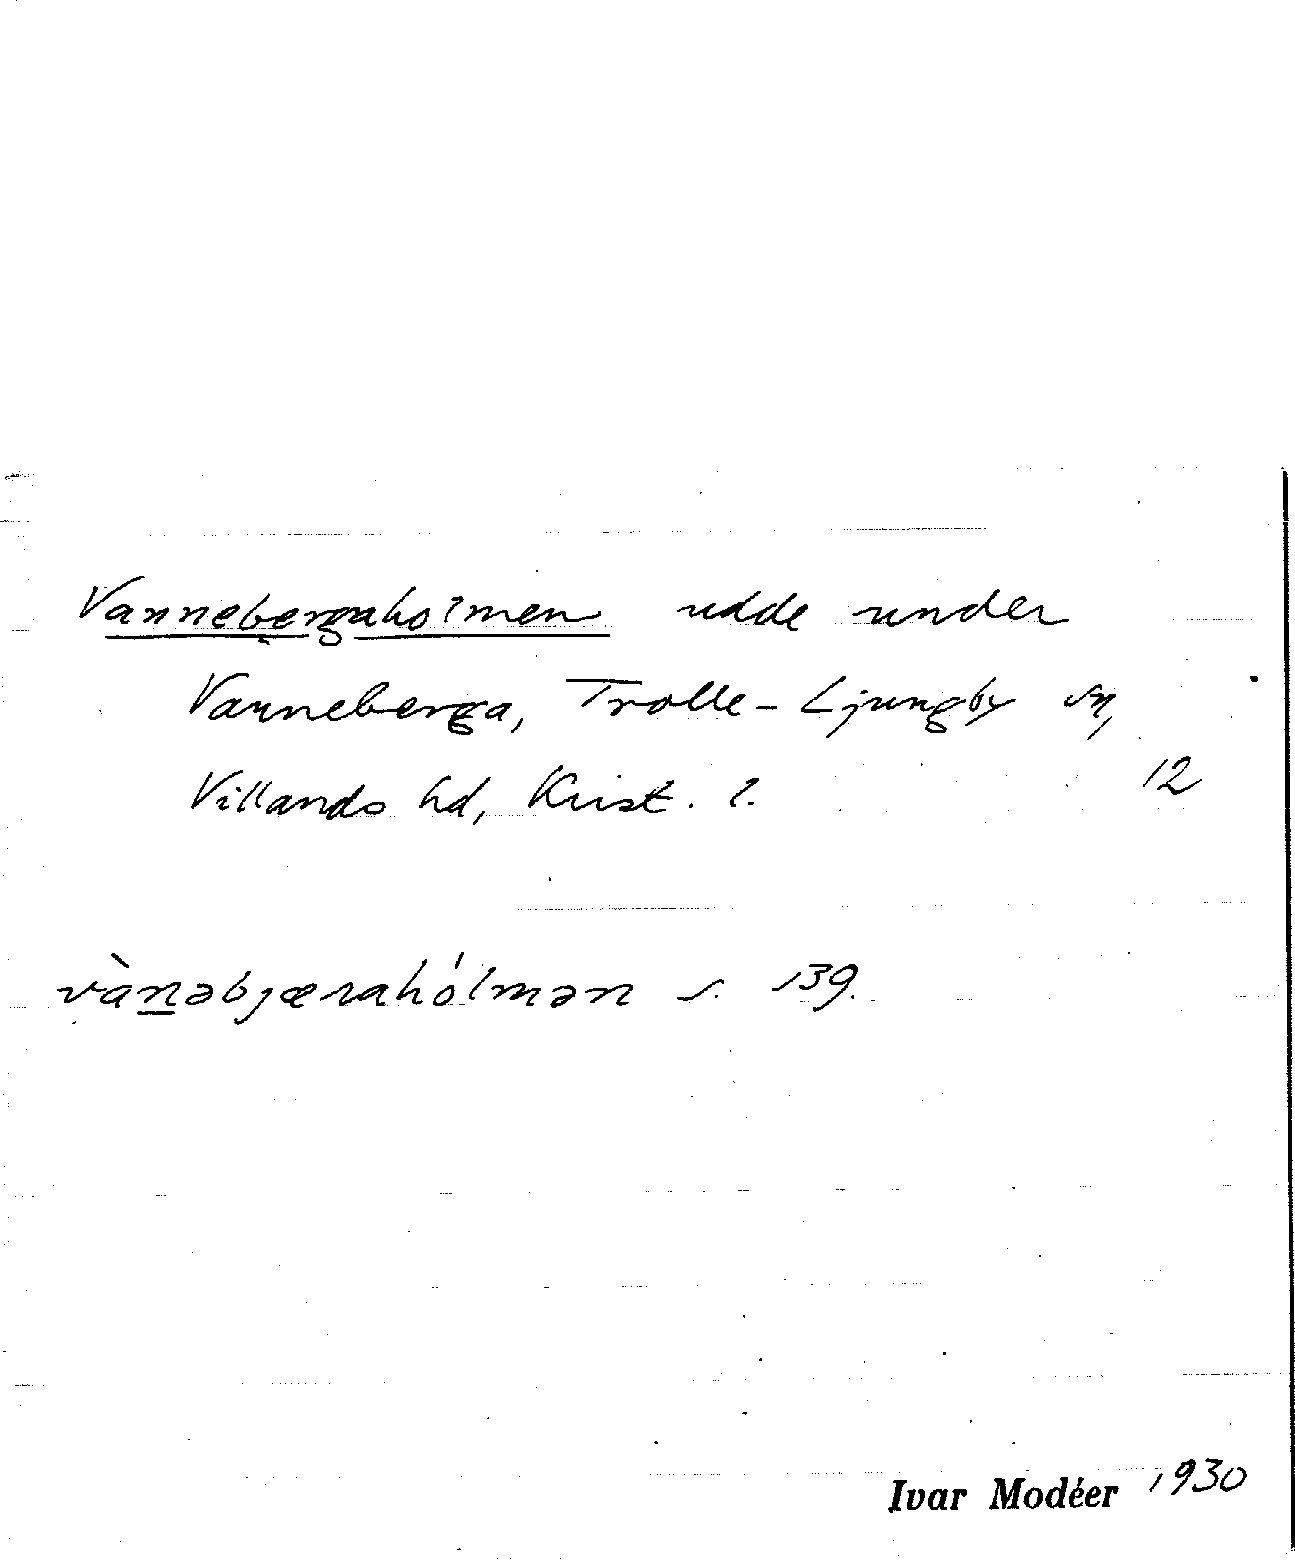 Vannebergaholmen udde under
Vanneberga, Trolle-Ljungby sn,
Villands hd, Krist. l. 12
vànəbjærahólmən s. 139.
Ivar Modéer 1930